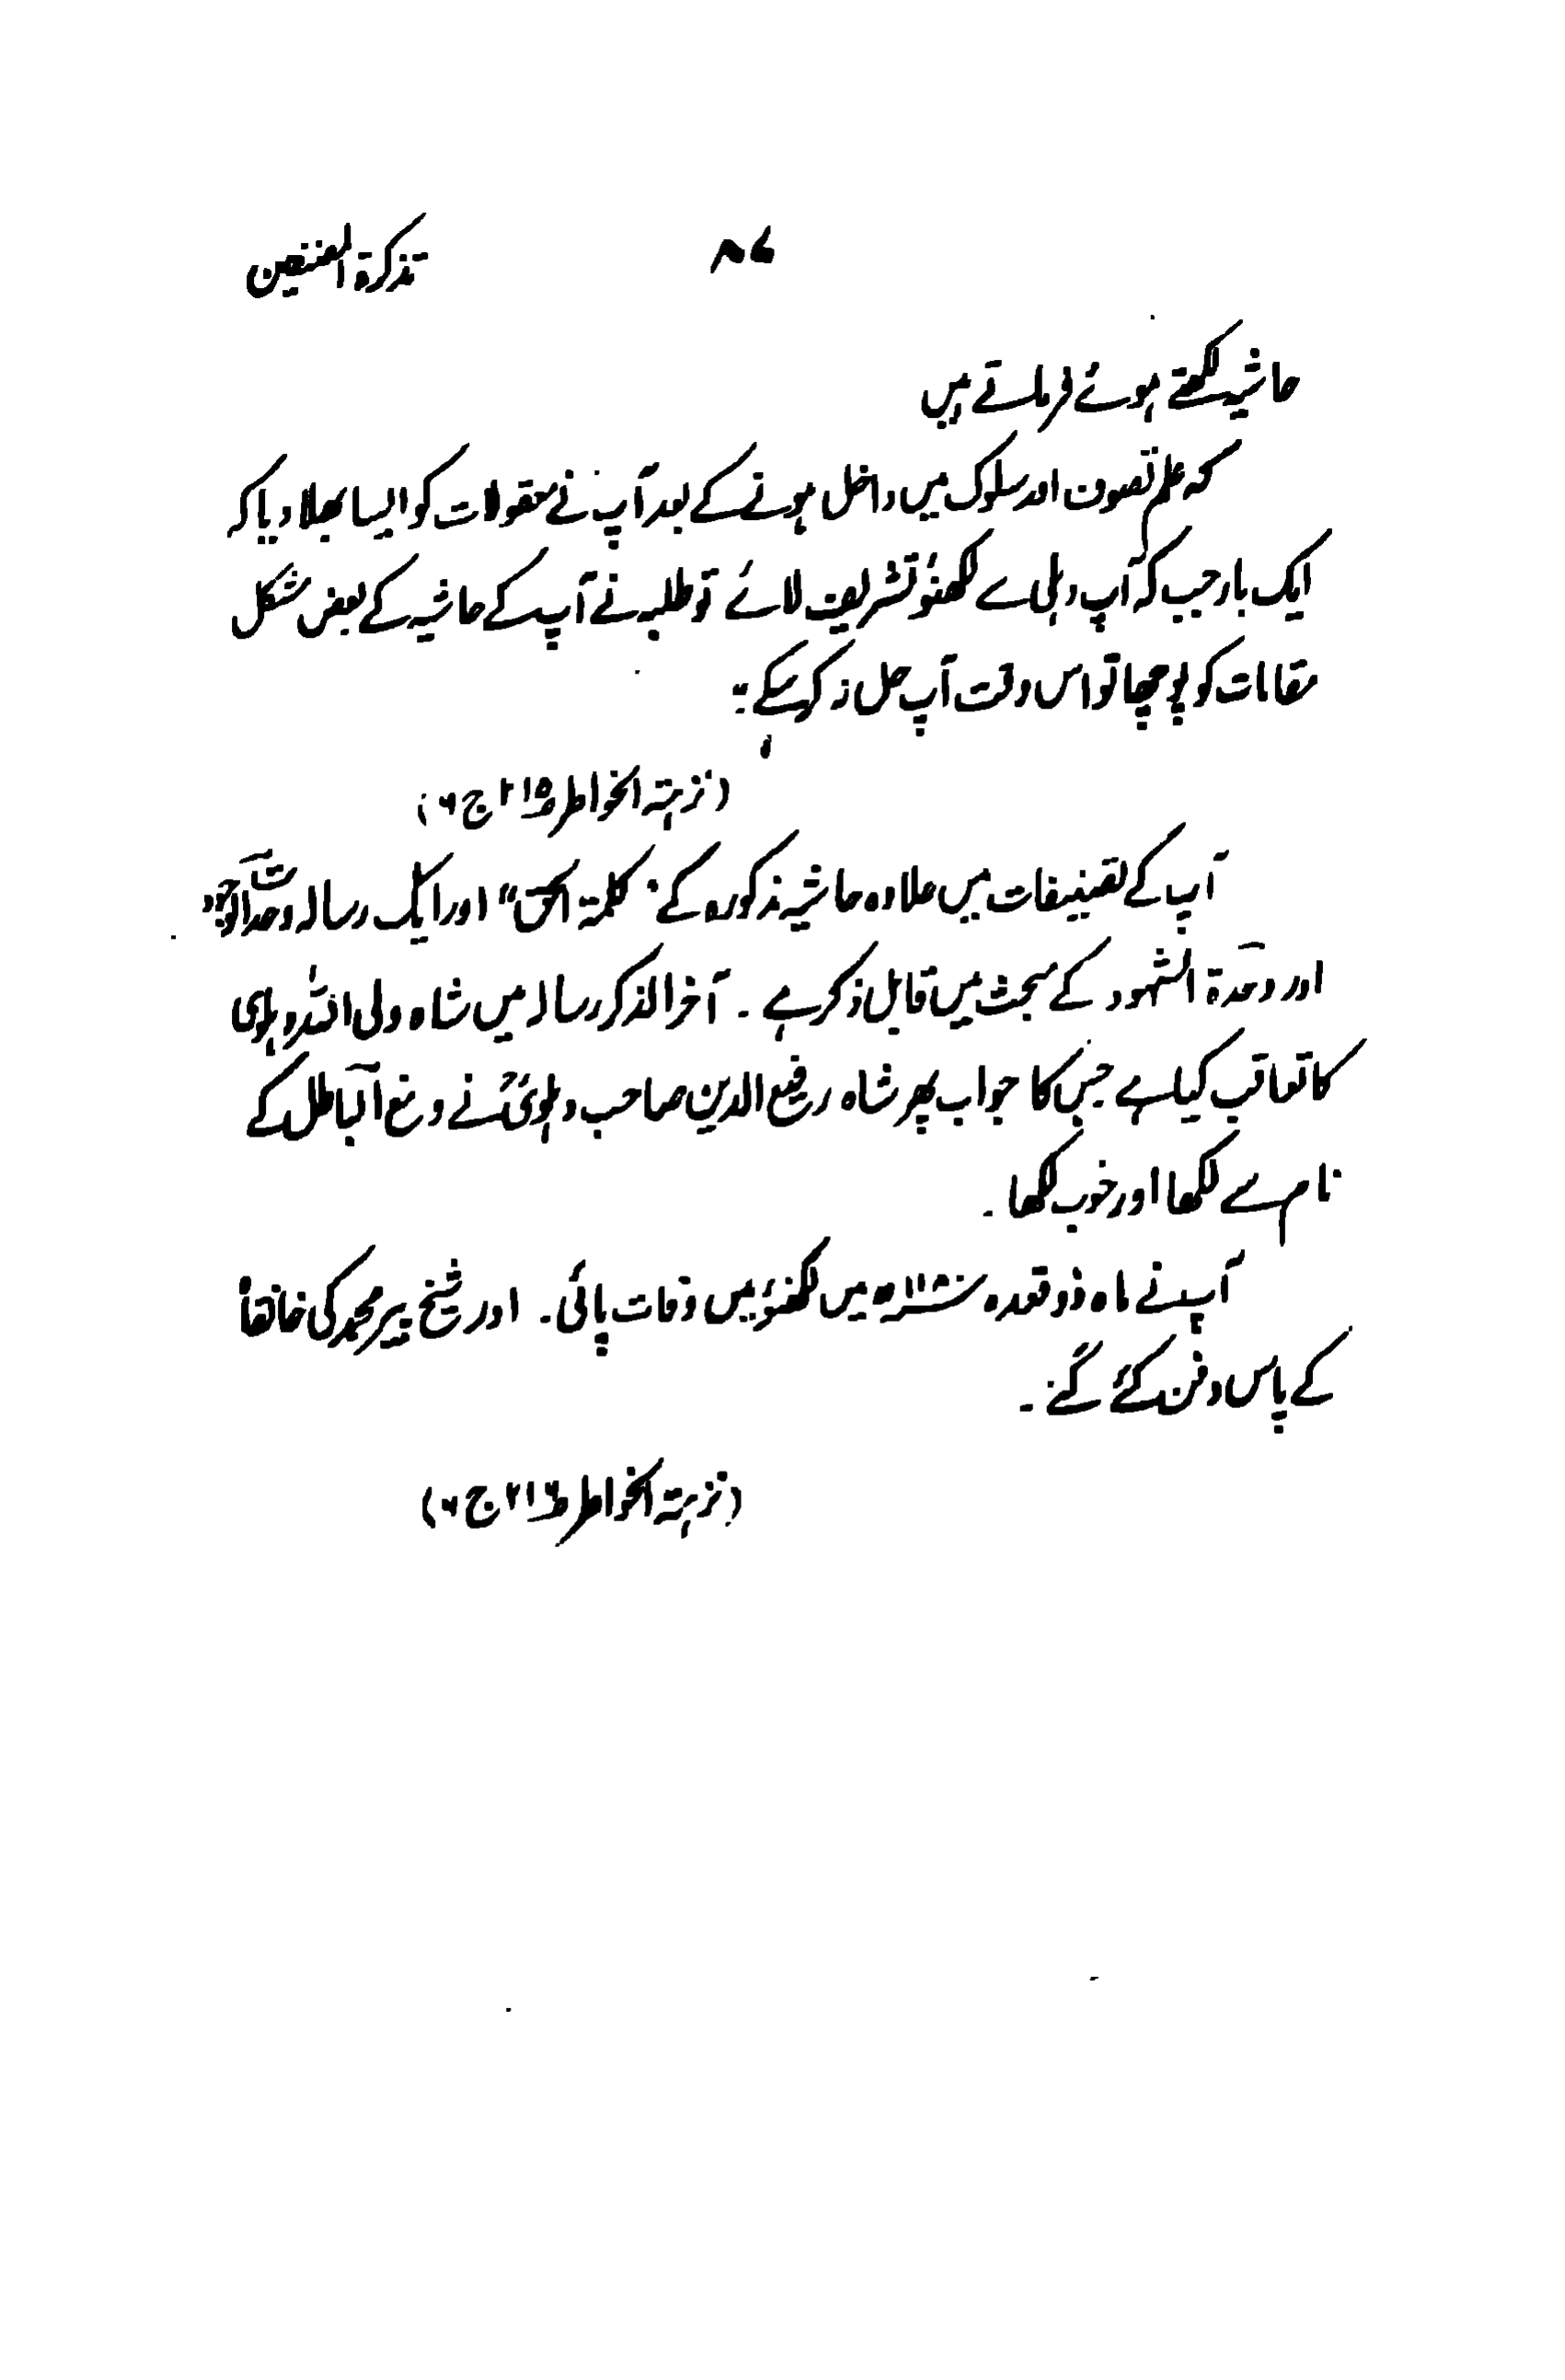 تذکرۃ المصنفین ۸۷
حاشیہ لکھتے ہوئے فرماتے ہیں
کہ علم تصوف اور سلوک میں داخل ہونے کے بعد آپ نے معقولات کو ایسا بھلا دیا کہ
ایک بار جب کہ آپ دہلی سے لکھنؤ تشریف لائے تو طلبہ نے آپ کے حاشیہ کے بعض مشکل
مقامات کو پوچھا تو اس وقت آپ حل نہ کر سکے؛
(نزہتہ الخواطر ص۲۱۵ ج۶)
آپ کے تصنیفات میں علاوہ حاشیہ مذکورہ کے "کلمۃ الحق" اور ایک رسالہ وحدۃ الوجود
اور وحدۃ الشہود کے بحث میں قابل ذکر ہے ۔ آخر الذکر رسالہ میں شاہ ولی اللہ دہلوی
کا تعاقب کیا ہے جس کا جواب پھر شاہ رفیع الدین صاحب دہلویؒ نے دمغ الباطل کے
نام سے لکھا اور خوب لکھا ۔
آپ نے ماہ ذوقعدہ میں لکھنؤ میں وفات پائی ۔ اور شیخ پیر محمد کی خانقاہ
کے پاس دفن کئے گئے ۔
(نزہتہ الخواطر ص۲۱۶ ج۶)